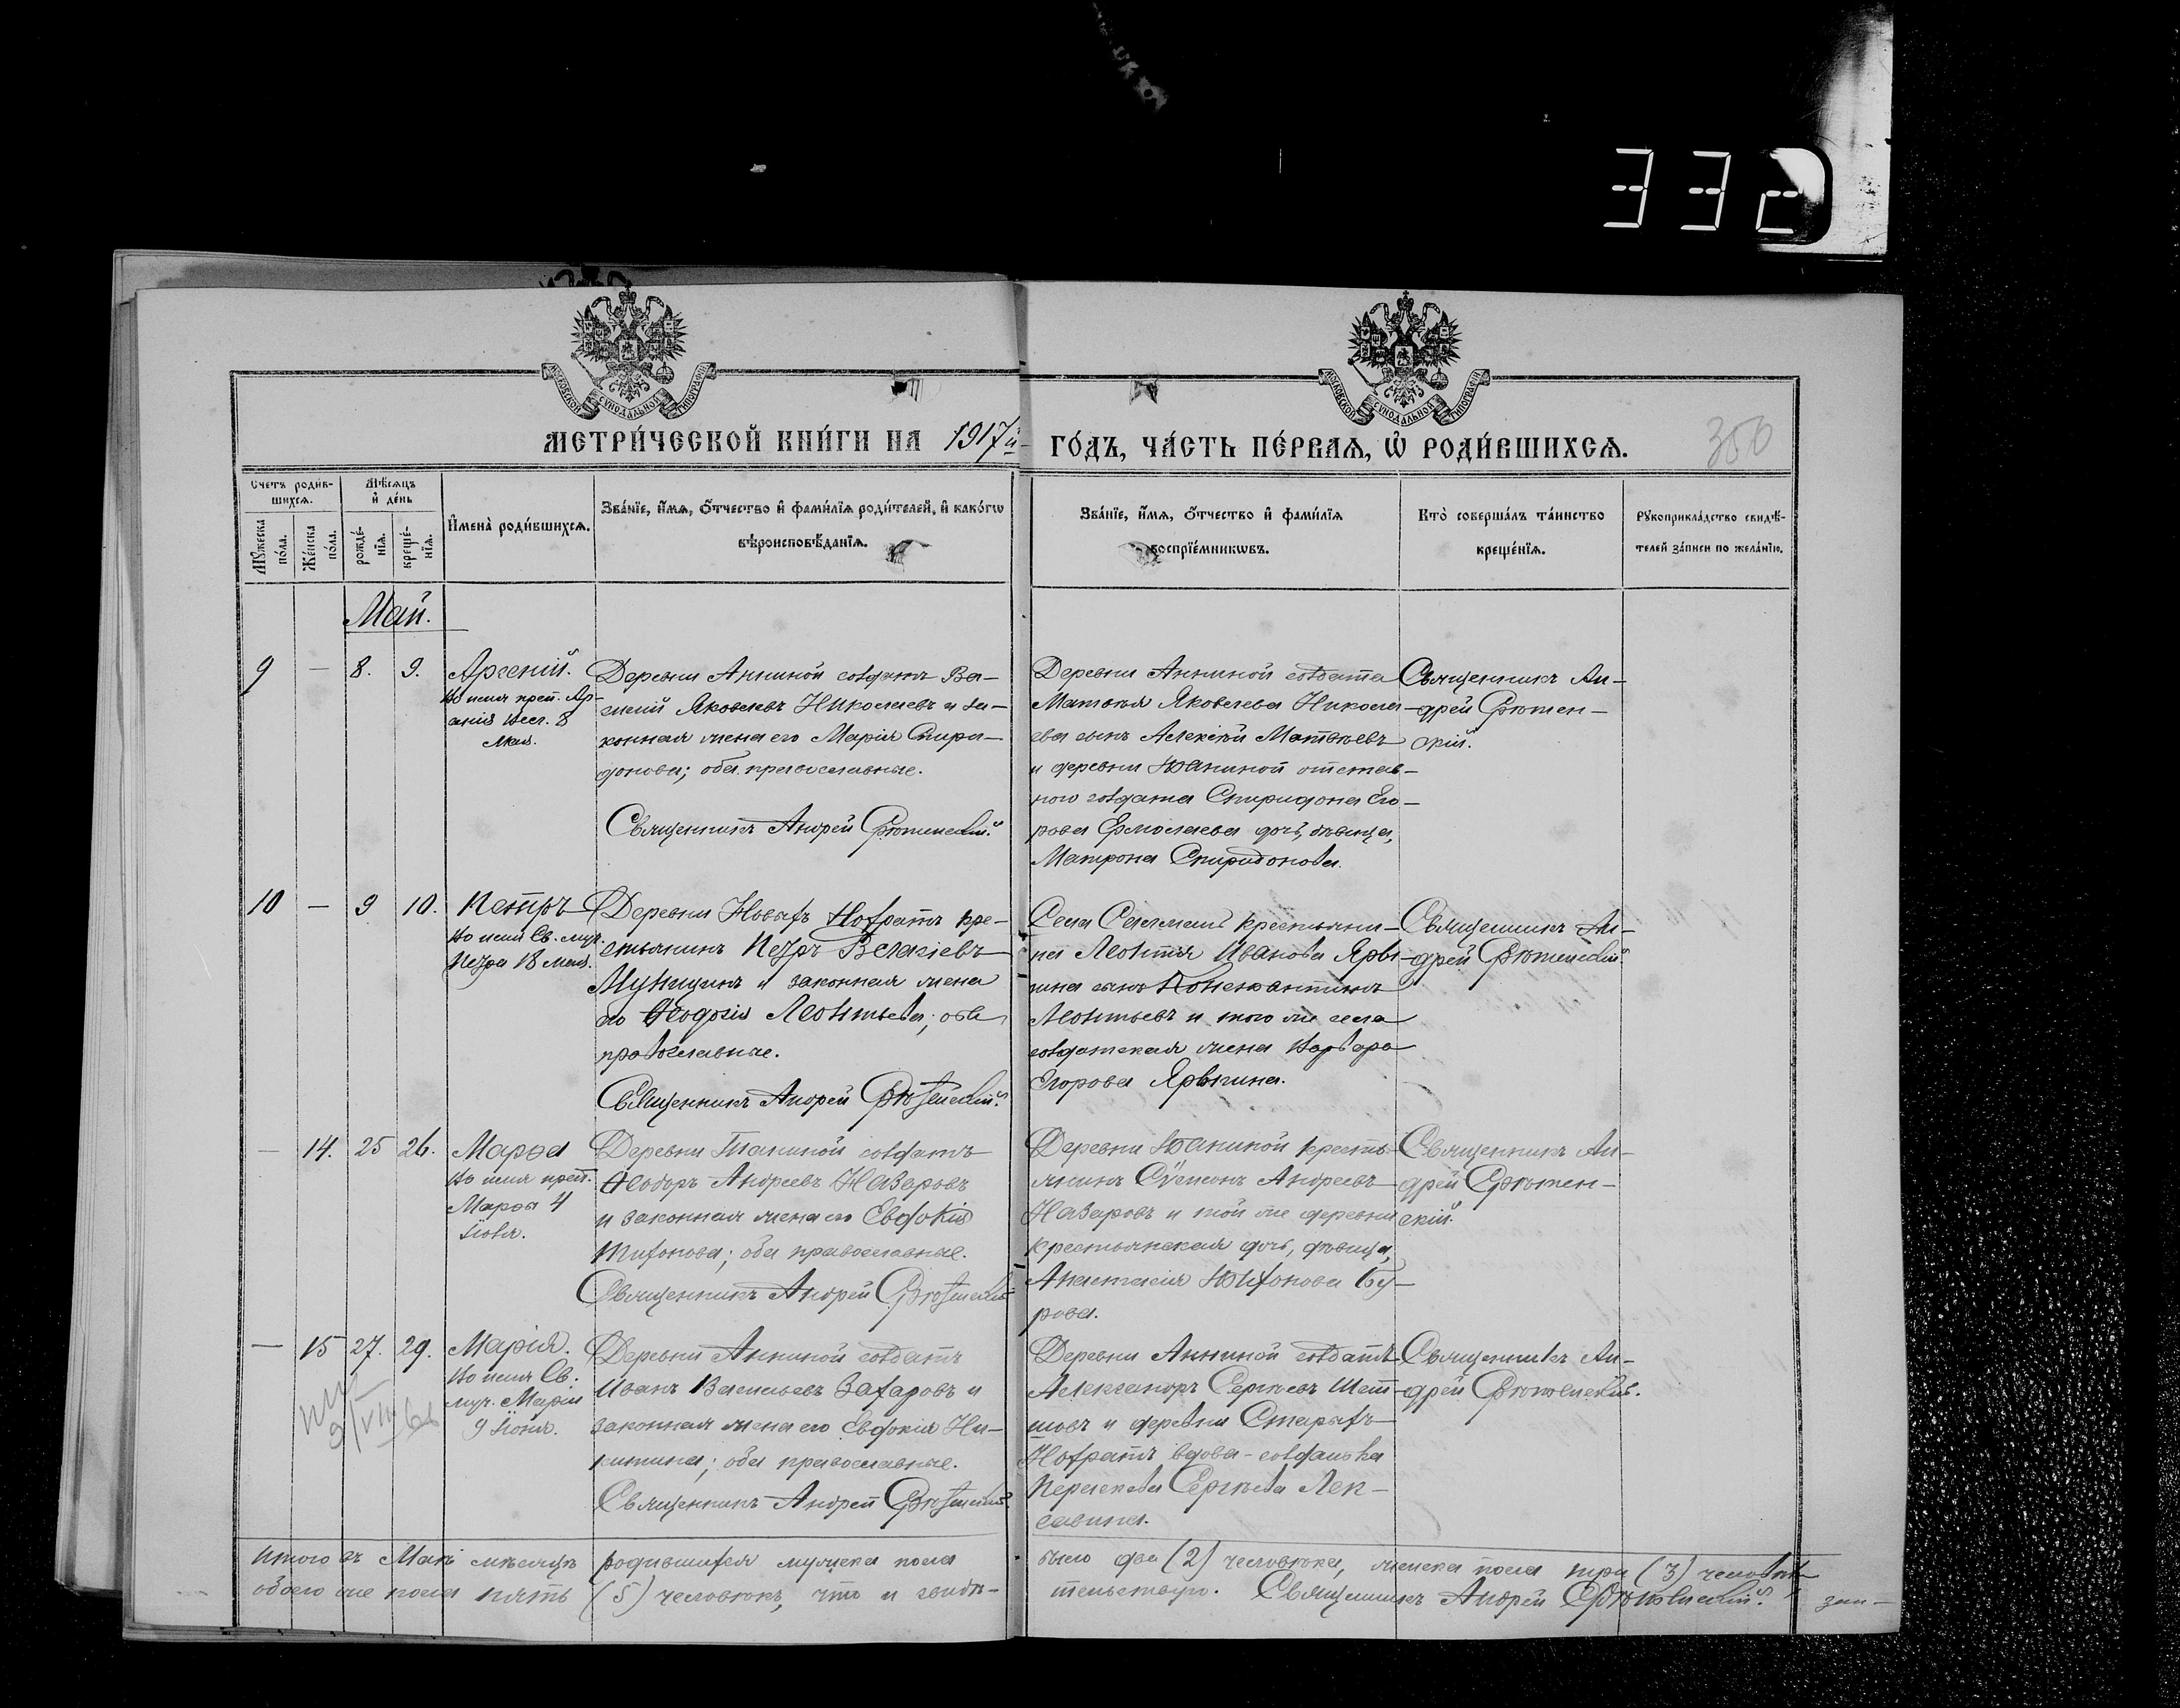 332
МОСКОВСКОЙ СѴНОДАЛЬНОЙ ТИПОГРАФІИ
МОСКОВСКОЙ СѴНОДАЛЬНОЙ ТИПОГРАФІИ
МЕТРИ́ЧЕСКОЙ КНИ́ГИ НА 1917й ГО́ДЪ, ЧА́СТЬ ПЕ́РВАЯ, Ѡ҆ РОДИ́ВШИХСЯ.
350
Счетъ роди́в-
шихся.
Мѣ́сяцъ
и҆ де́нь
Мꙋ́жеска
по́ла.
Же́нска
по́ла.
рожде́-
нїѧ.
креще́-
нїѧ.
И҆мена̀ роди́вшихсѧ.
Зва́нїе, и҆́мѧ, ѻ҆́тчество и҆ фами́лїѧ роди́телей, и҆ како́гѡ
вѣроисповѣ́данїѧ.
Зва́нїе, и҆́мѧ, ѻ҆́тчество и҆ фами́лїѧ
воспрїе́мникѡвъ.
Кто̀ соверша́лъ та́инство
креще́нїѧ.
Рꙋкоприкла́дство свидѣ́-
телей за́писи по жела́нїю.
Май.
9 — 8. 9.
Арсеній.
Во имя преп. Ар-
8
Мая.
Деревни Анниной солдатъ Ва-
силій Яковлевъ Николаевъ и за-
конная жена его Марія Спири-
донова; оба православные.
Священникъ Андрей
Деревни Анниной солдата
Матвѣя Яковлева Никола-
ева сынъ Алексѣй Матвѣевъ
и деревни Ваниной отстав-
ного солдата Спиридона Его-
рова Ермолаева дочь, дѣвица,
Матрона Спиридонова.
Священникъ Ан-
дрей
скій.
10 — 9 10.
Петръ
Во имя Св. муч.
Петра 18 мая.
Деревни Новыхъ кре-
стьянинъ Петръ Власіевъ
и законная жена
его Ѳеодосія Леонтьева; оба
православные.
Священникъ Андрей
Села крестьяни-
на Леонтія Иванова Яры-
гина сынъ Константинъ
Леонтьевъ и того же села
солдатская жена Варвара
Егорова Ярыгина.
Священникъ Ан-
дрей
— 14. 25 26.
Марѳа
Во имя преп.
Марѳы 4
Іюля.
Деревни Ваниной солдатъ
Ѳеодоръ Андреевъ Назаровъ
и законная жена его Евдокія
Тихонова; оба православные.
Священникъ Андрей
Деревни Ваниной кресть-
янинъ Сѵмеонъ Андреевъ
Назаровъ и той же деревни
крестьянская дочь, дѣвица,
Анастасія Тихонова Бу-
рова.
Священникъ Ан-
дрей
скій.
— 15 27. 29.
Марія.
Во имя Св.
муч. Маріи
9 Іюня.
Деревни Анниной солдатъ
Иванъ Васильевъ Захаровъ и
законная жена его Евдокія Ни-
китина; оба православные.
Священникъ Андрей
Деревни Анниной солдатъ
Александръ Сергѣевъ
и деревни Старыхъ
вдова-солдатка
Сергѣева
Священникъ Ан-
дрей
Итого въ Маѣ мѣсяцѣ родившихся мужеска пола было два (2) человѣка, женска пола три (3) человѣка
обоего же пола пять (5) человѣкъ, что и свидѣ- тельствую. Священникъ Андрей